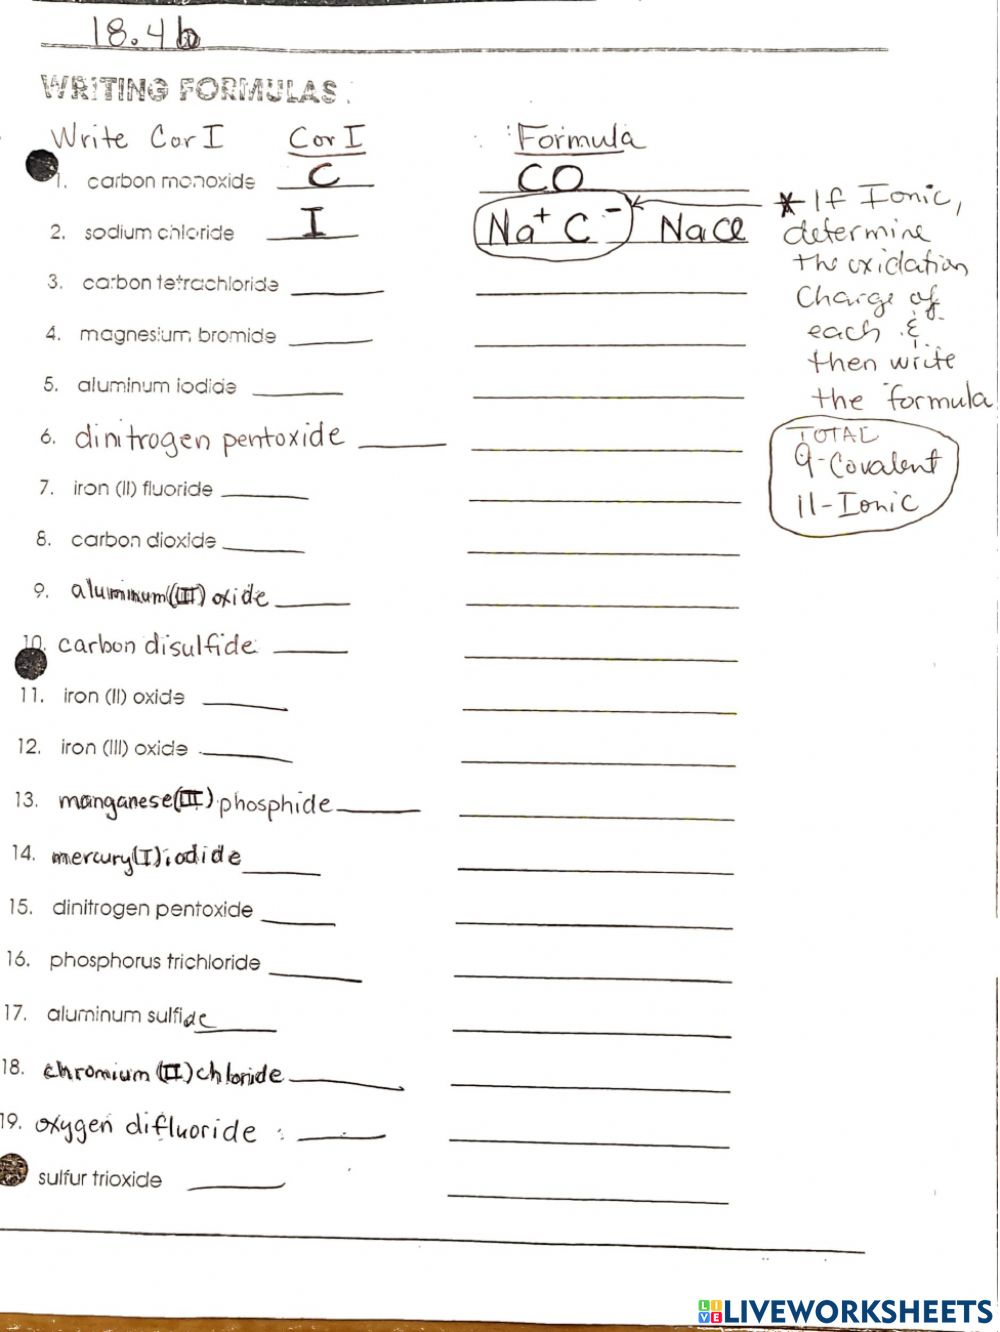 18.4b
WRITING FORMULAS
Write C or I   C or I   Formula
1. carbon monoxide   C   CO
2. sodium chloride   I   Na+ C-   NaCl
* If Ionic,
determine
the oxidation
Charge of
each &
then write
the formula
3. carbon tetrachloride
4. magnesium bromide
5. aluminum iodide
6. dinitrogen pentoxide
TOTAL
9-Covalent
11-Ionic
7. iron (II) fluoride
8. carbon dioxide
9. aluminum(III) oxide
10. carbon disulfide
11. iron (II) oxide
12. iron (III) oxide
13. manganese(II) phosphide
14. mercury(I) iodide
15. dinitrogen pentoxide
16. phosphorus trichloride
17. aluminum sulfide
18. chromium (II) chloride
19. oxygen difluoride
sulfur trioxide
LIVEWORKSHEETS